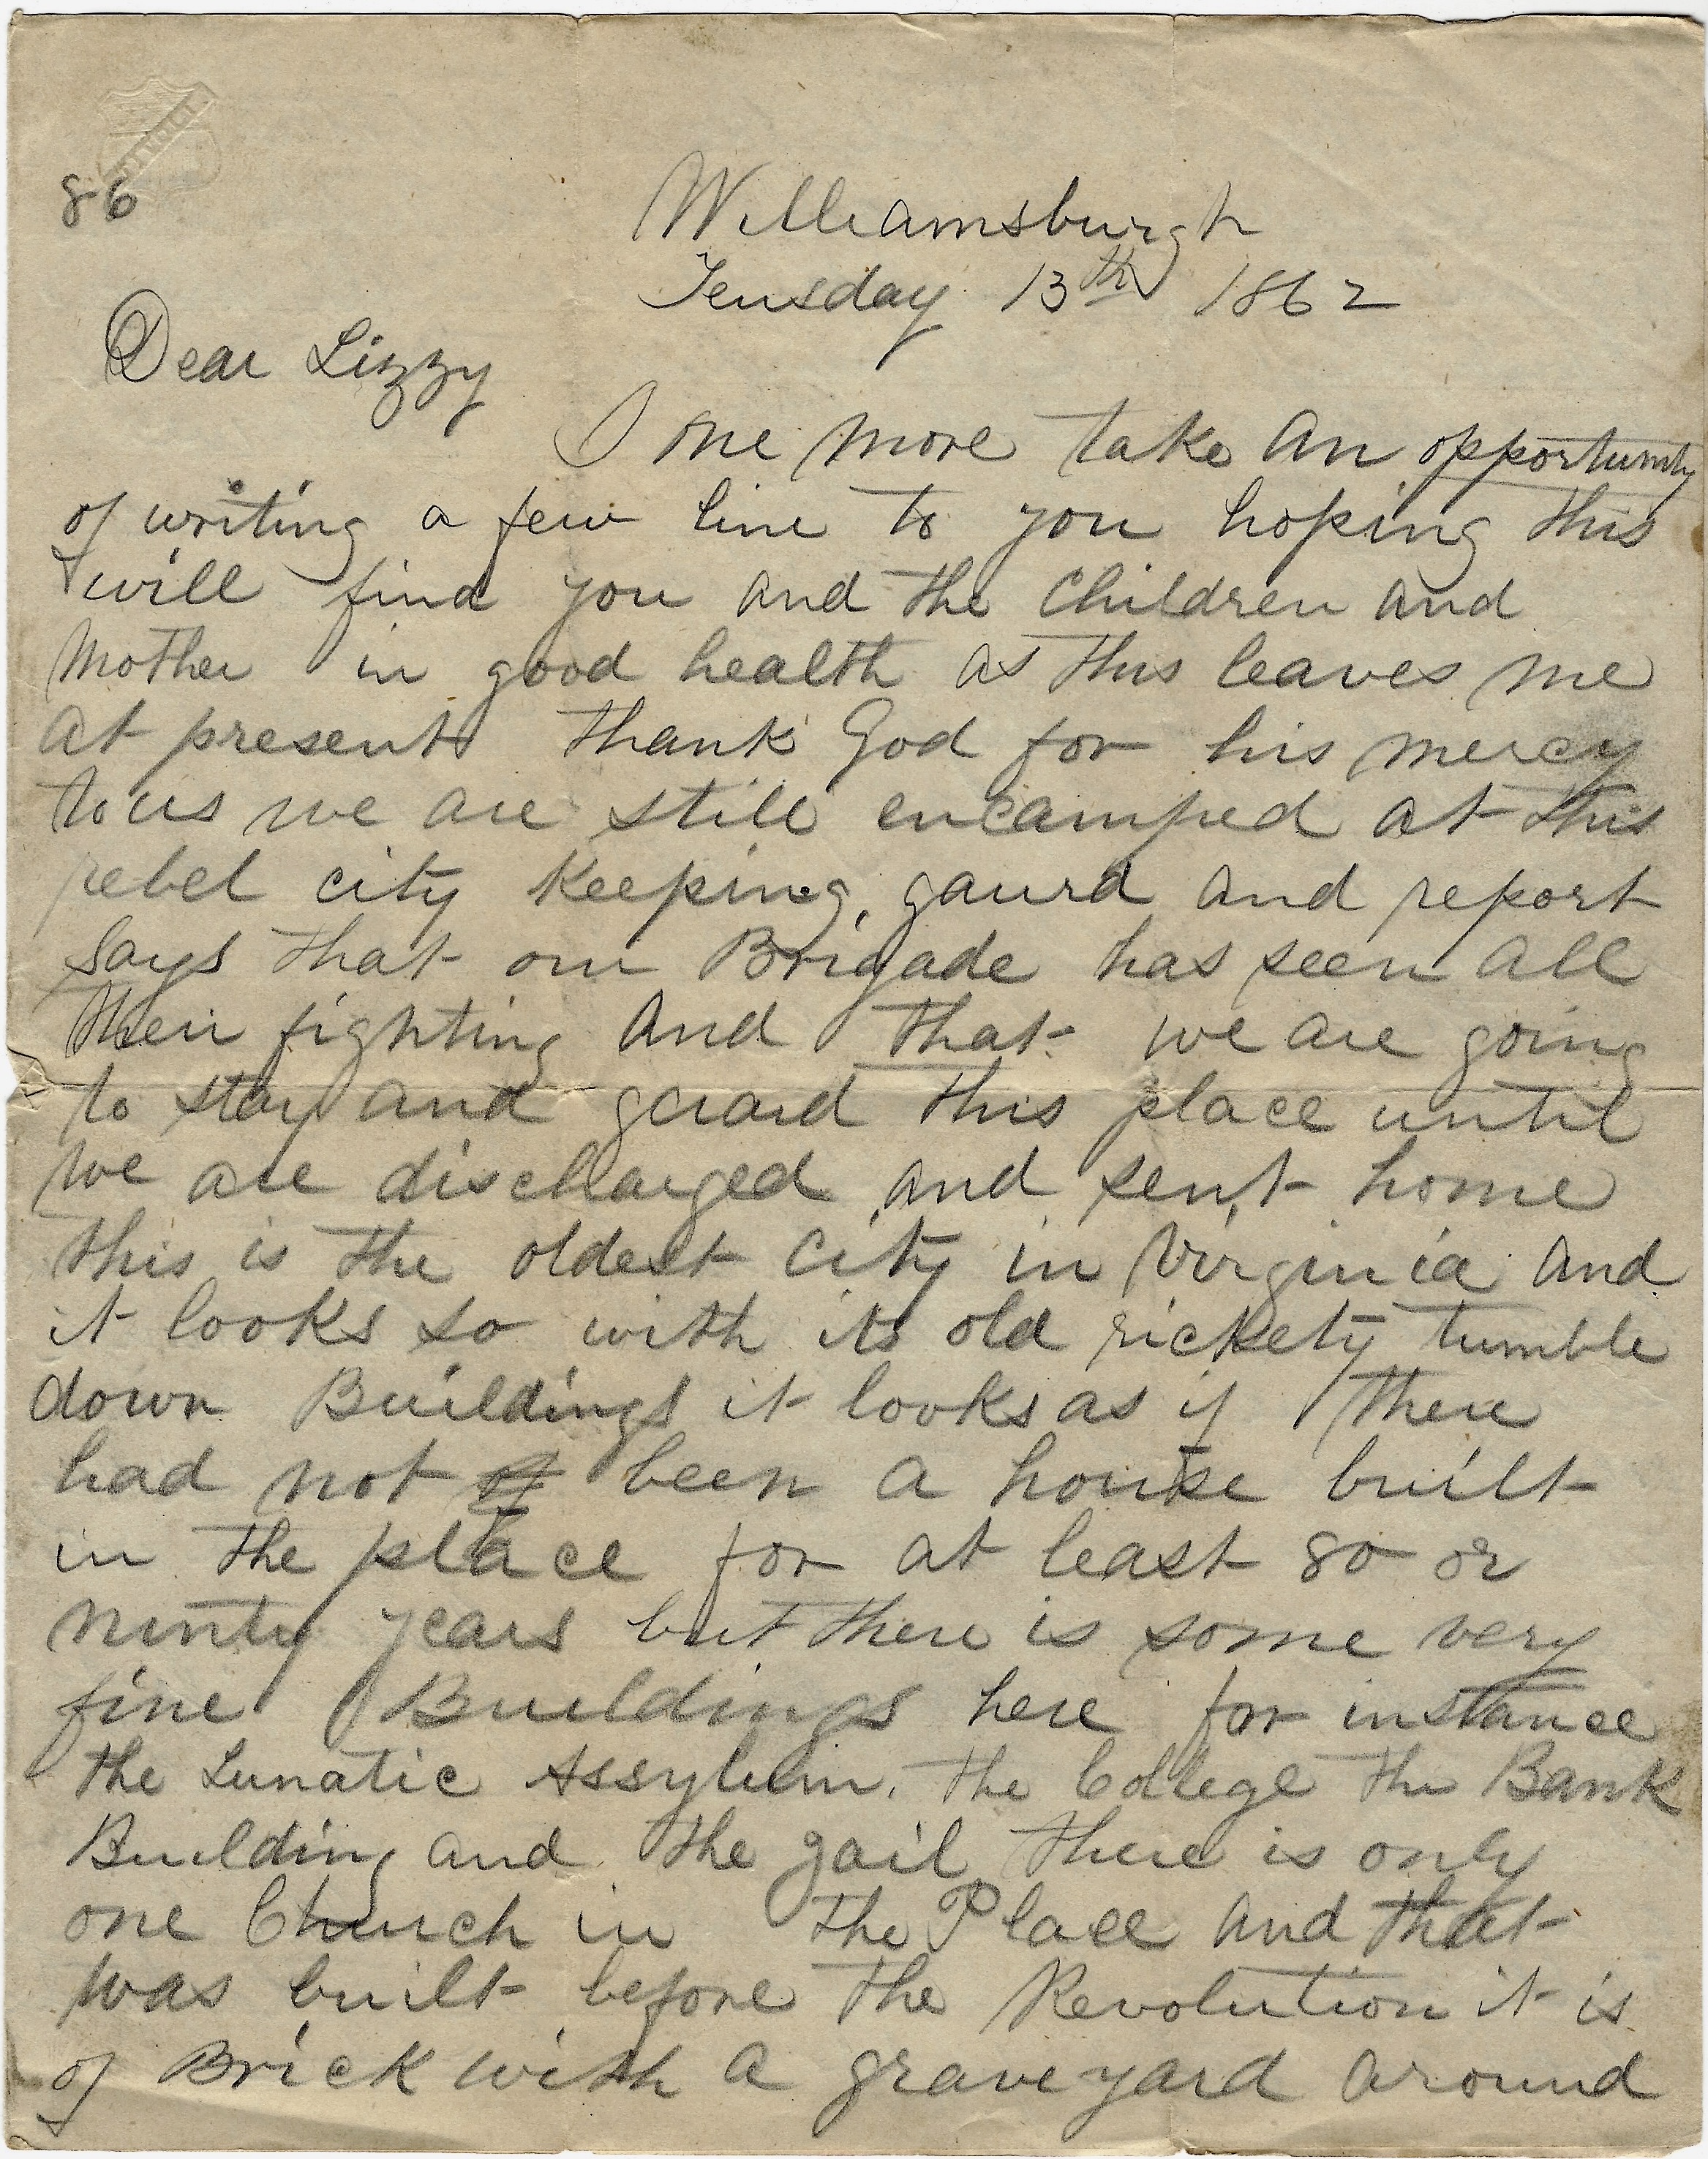 86
Williamsburgh
Teusday 13th 1862
Dear Lizzy
I one more take an opportunity
of writing a few line to you hoping this
will find you and the Children and
Mother in good health as this leaves me
at present thank God for his mercy
to us we are still encamped at this
rebel city Keeping, gaurd and report
says that our Brigade has seen all
their fighting and that we are going
to stay and guard this place until
we are discharged and sent home
this is the oldest City in Virginia and
it looks so with its old rickety tumble
down Buildings it looks as if there
had not of been a house built
in the place for at least 80 or
ninty years but there is some very
fine Buildings here for instance
the Lunatic Assylum, the College the Bank
Building and the gail there is only
one Church in the Place and that
was built before the Revolution it is
of Brick with a grave yard around